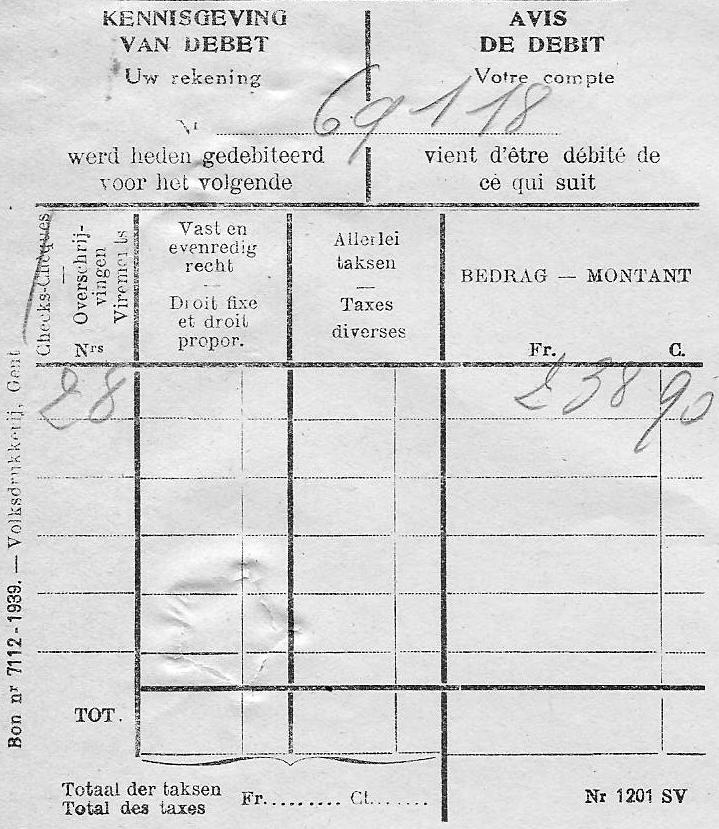 KENNISGEVING
VAN DEBET
Uw rekening
AVIS
DE DEBIT
Votre compte
Nr 69118
werd heden gedebiteerd
voor het volgende
vient d'être débité de
ce qui suit
Checks-Chèques
Overschrij-
vingen
Virements
Nrs
Vast en
evenredig
recht
Droit fixe
et droit
propor.
Allerlei
taksen
Taxes
diverses
BEDRAG — MONTANT
Fr. C.
28 238 90
TOT.
Totaal der taksen
Total des taxes
Fr......... Ct.......
Nr 1201 SV
Bon nr 7112-1939. — Volksdrukkerij, Gent